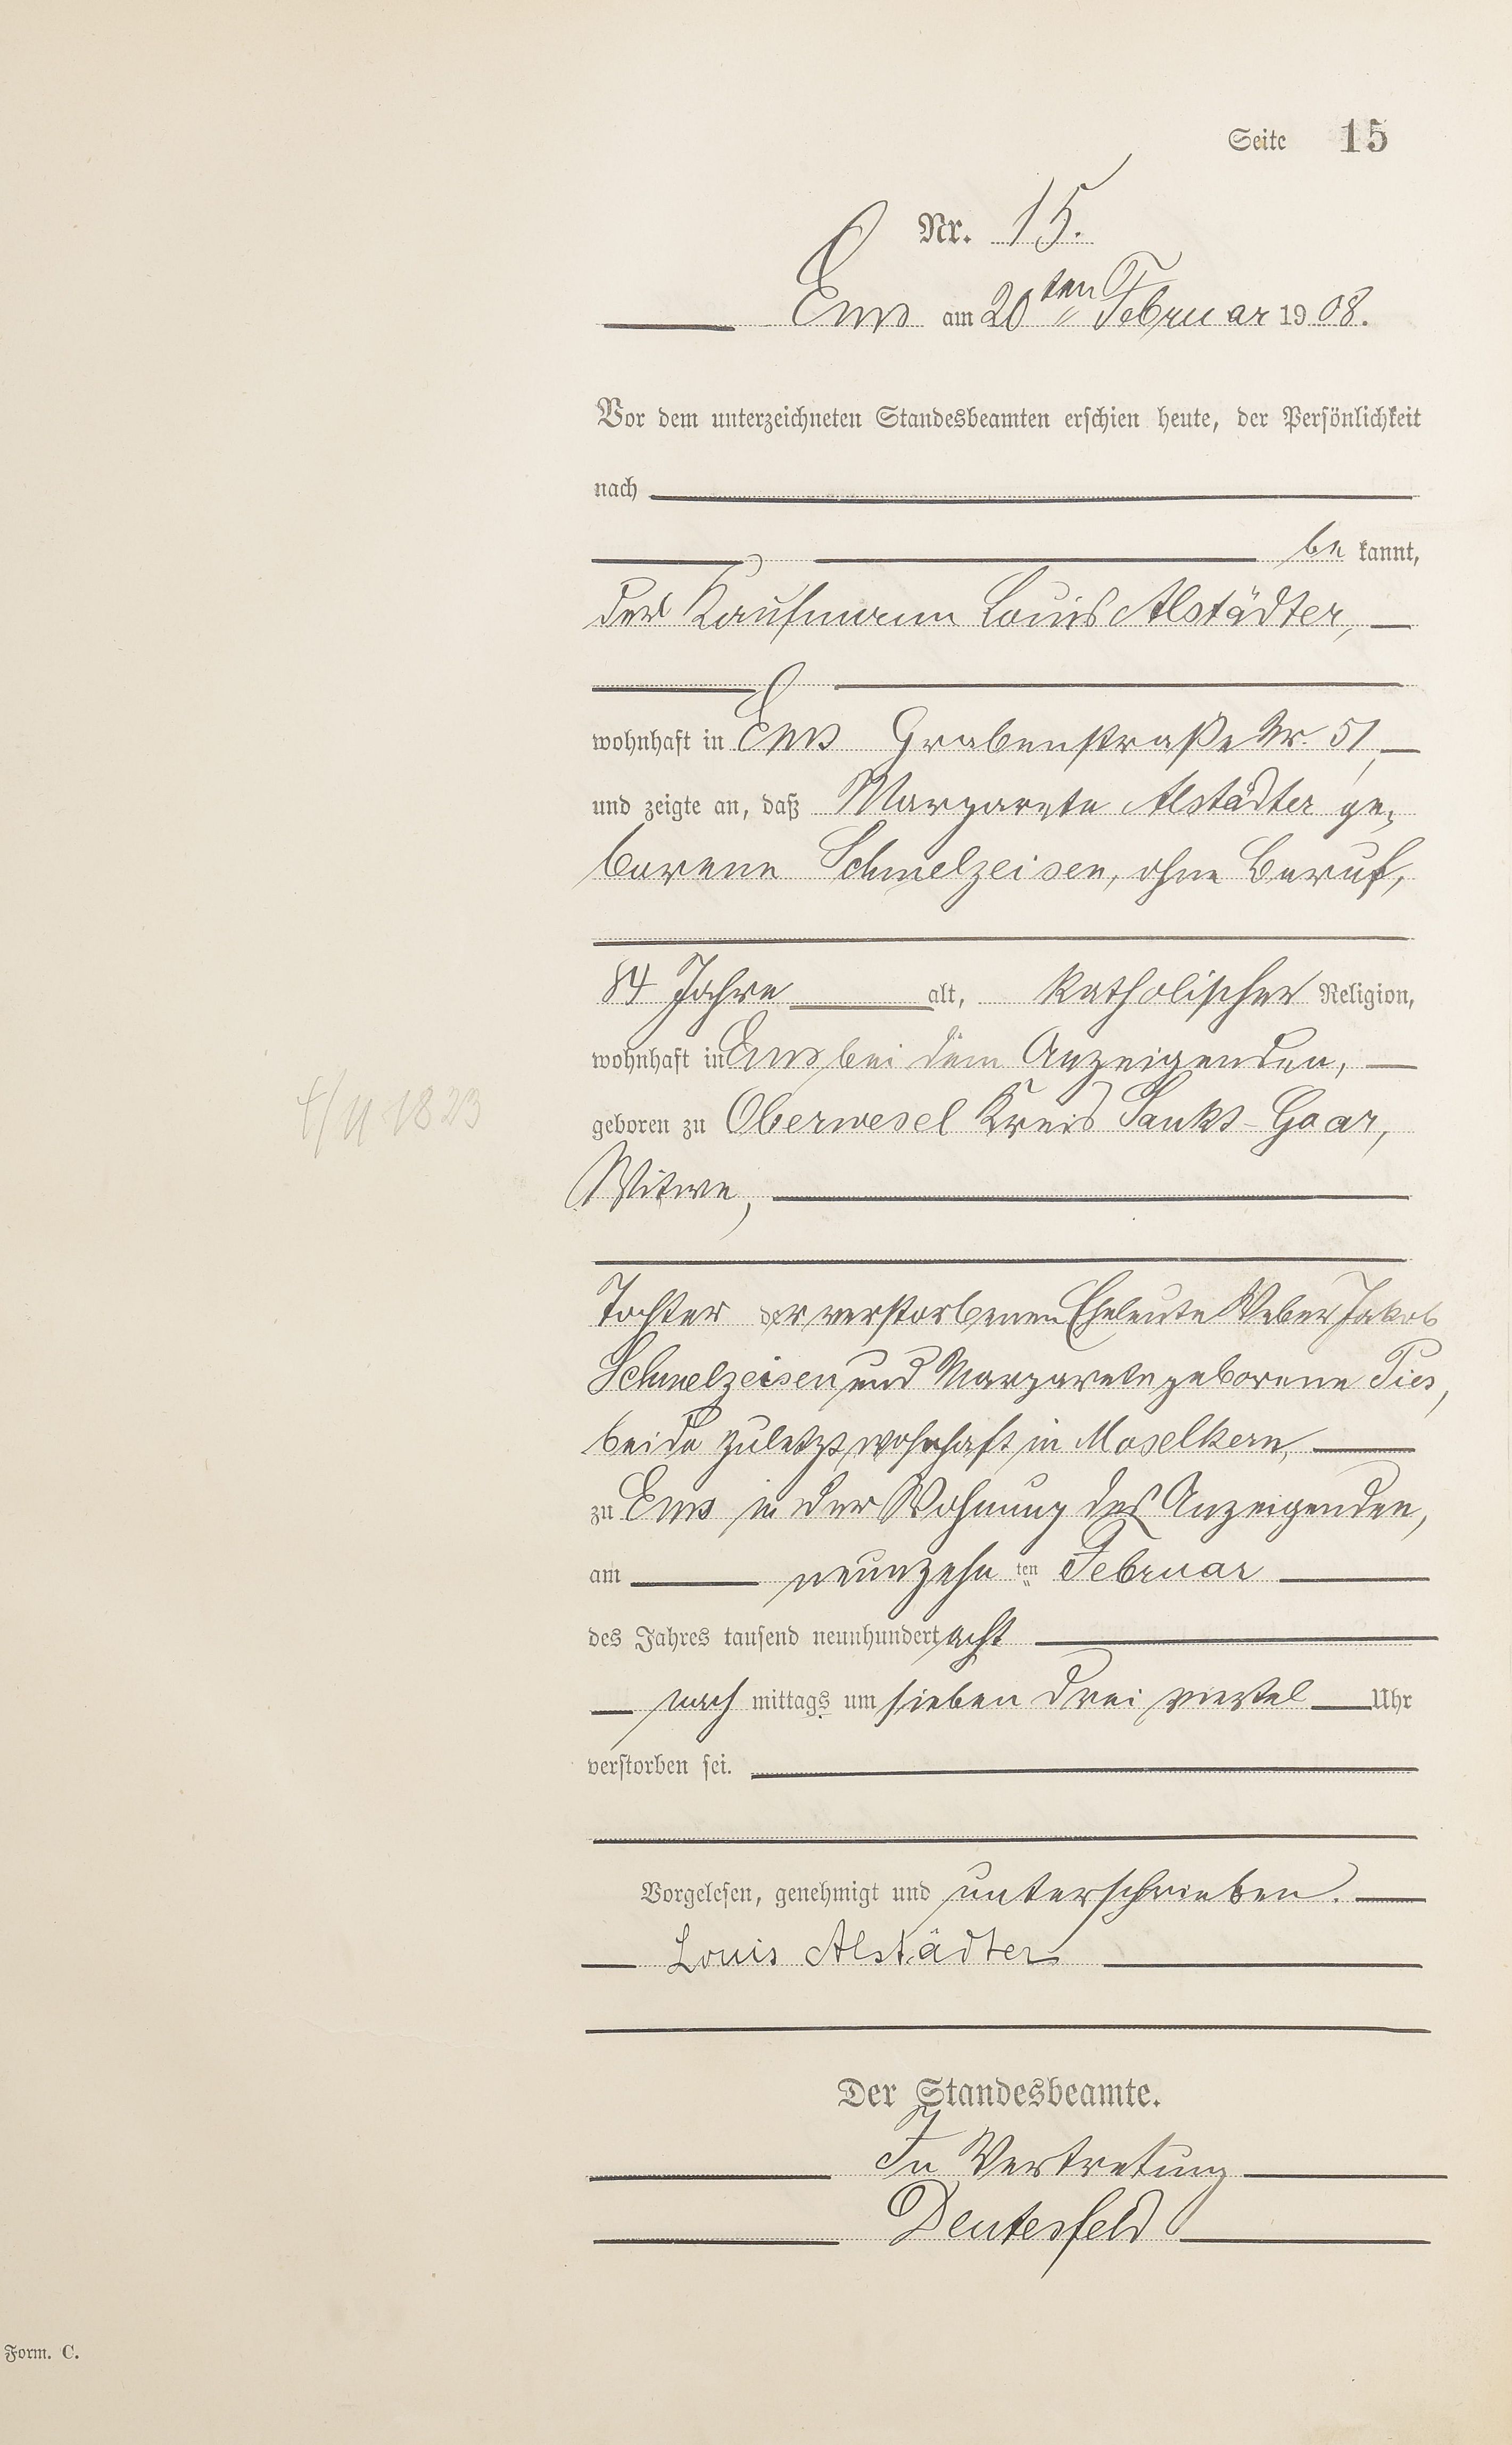 Seite 15
Nr. 15.
Ems am 20ten Februar 1908.
Vor dem unterzeichneten Standesbeamten erschien heute, der Persönlichkeit
nach
be kannt,
der Kaufmann Louis Alstädter,
wohnhaft in Ems Grabenstraße Nr. 51,
und zeigte an, daß Margarete Alstädter ge-
borene Schmelzeisen, ohne Beruf,
84 Jahre alt, katholischer Religion,
wohnhaft in Ems bei dem Anzeigenden,
4/11 1823
geboren zu Oberwesel Kreis Sankt-Goar,
Witwe,
Tochter der verstorbenen Eheleute Weber Jakob
Schmelzeisen und Margarete geborene Pies,
beide zuletzt wohnhaft in Moselkern,
zu Ems in der Wohnung des Anzeigenden,
am neunzehn ten Februar
des Jahres tausend neunhundert acht
nach mittags um sieben drei viertel Uhr
verstorben sei.
Vorgelesen, genehmigt und unterschrieben.
Louis Alstädter
Der Standesbeamte.
In Vertretung
Deutesfeld
Form. C.